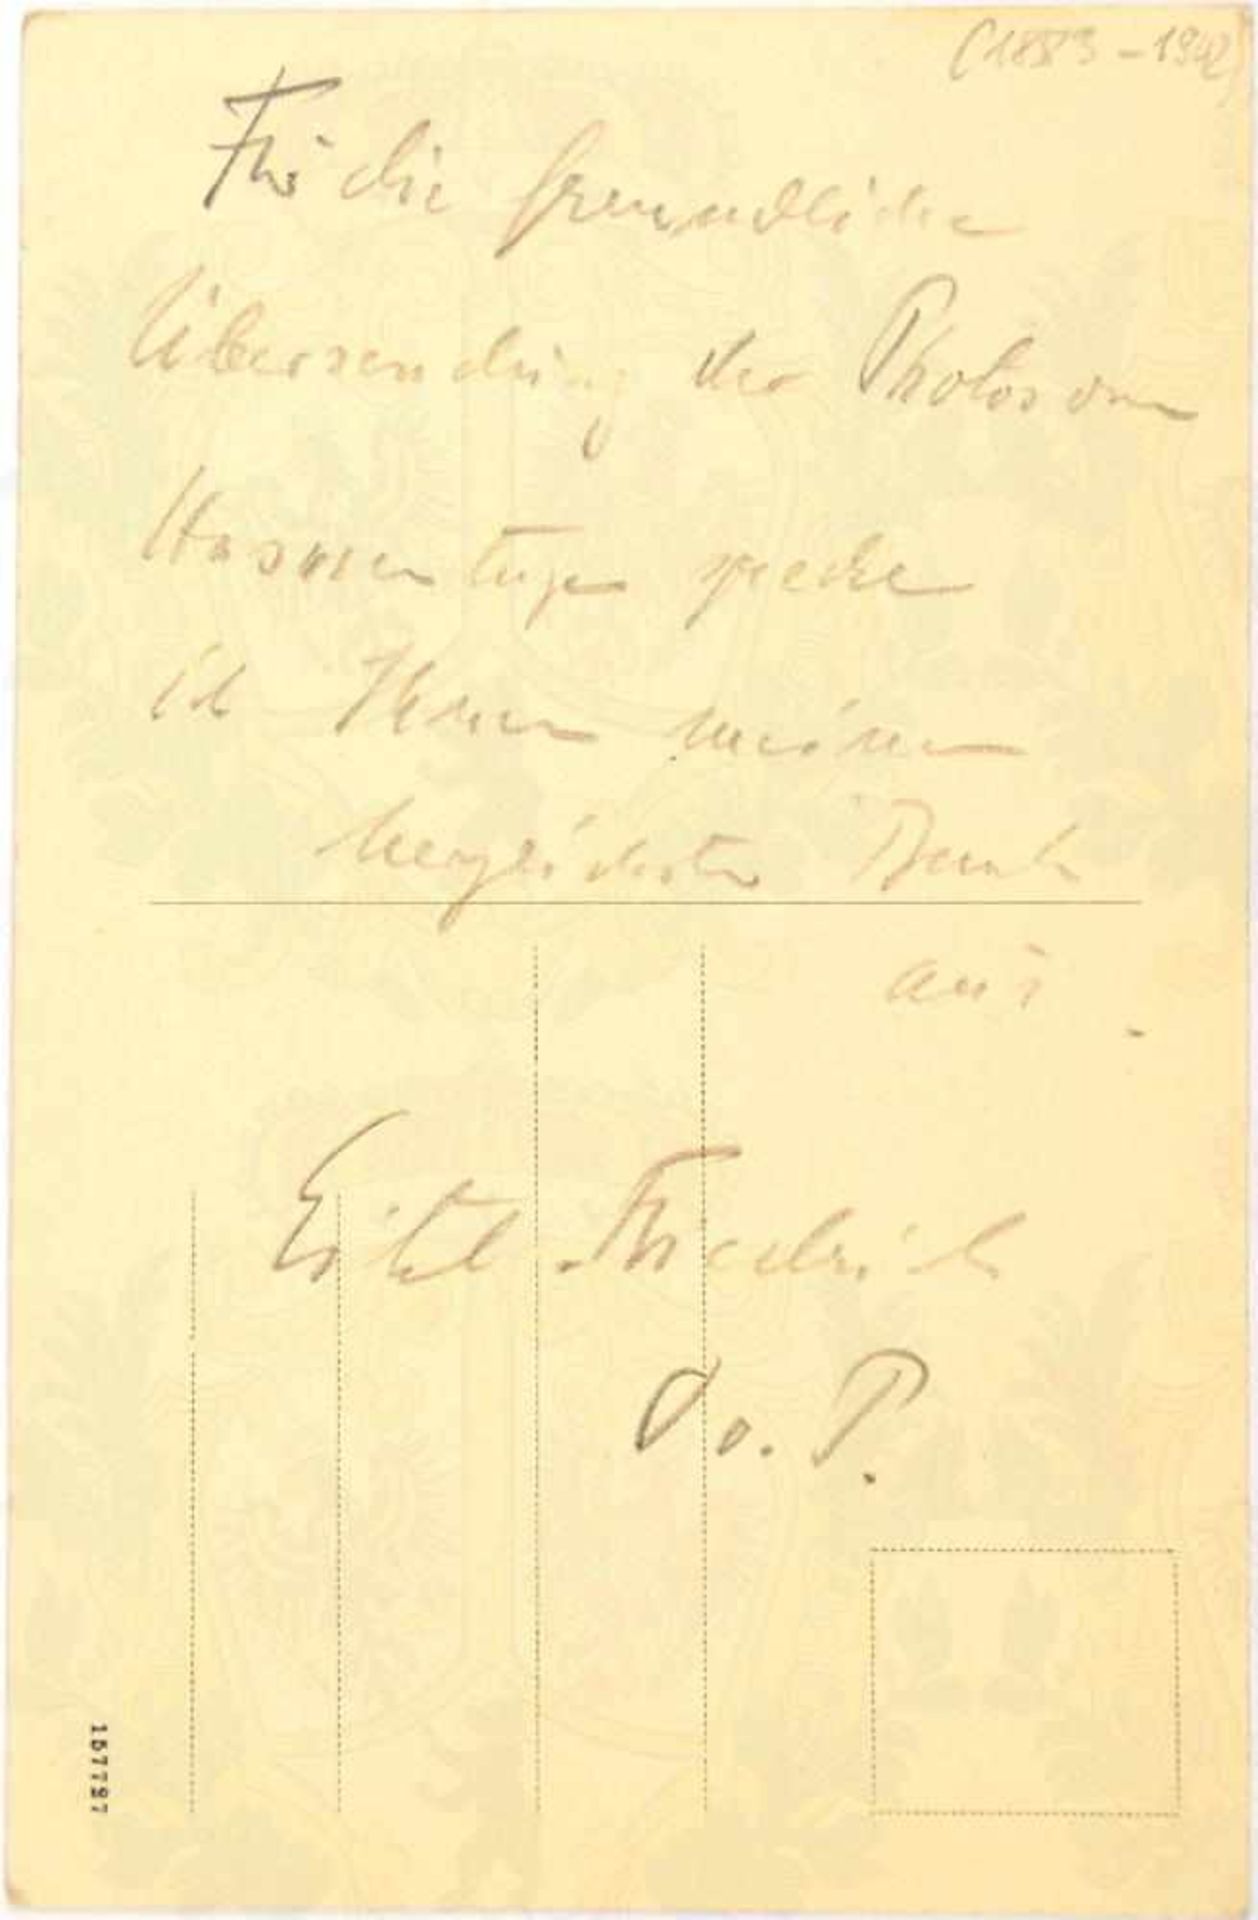 (1883-1942)
Für die freundliche
Übersendung der Photos vom
spreche
ich Ihnen meinen
herzlichsten Dank
aus.
Eitel-Friedrich
v. P.
157797